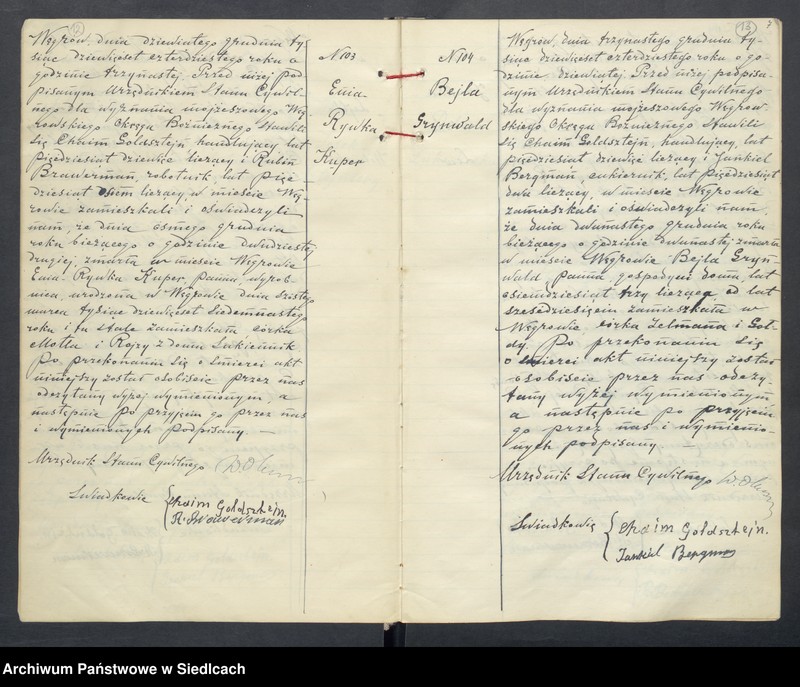 Węgrów, dnia dziewiątego grudnia ty-
siąc dziewięćset czterdziestego roku o
godzinie trzynastej. Przed niżej pod-
pisanym Urzędnikiem Stanu Cywil-
nego dla wyznania mojżeszowego Wę-
growskiego Okręgu Bóżnicznego stawili
się Chaim Goldsztejn, handlujący, lat
pięćdziesiąt dziewięć liczący i Rubin
Brawerman, robotnik, lat pięć-
dziesiąt osiem liczący, w mieście Wę-
growie zamieszkali i oświadczyli
nam, że dnia ósmego grudnia
roku bieżącego o godzinie dwudziestej
drugiej, zmarła w mieście Węgrowie
Enia-Rywka Kuper, panna, wyrob-
nica, urodzona w Węgrowie dnia szóstego
marca tysiąc dziewięćset siedemnastego
roku i tu stale zamieszkała, córka
Motła i Rojzy z domu Sukiennik.
Po przekonaniu się o śmierci akt
niniejszy został osobiście przez nas
odczytany wyżej wymienionym, a
następnie po przyjęciu go przez nas
i wymienionych podpisany. —
Urzędnik Stanu Cywilnego
Świadkowie
Chaim Goldsztejn.
R. Brawerman
N 103
Enia-
Rywka
Kuper
N 104
Bejla
Grynwald
13
Węgrów, dnia trzynastego grudnia ty-
siąc dziewięćset czterdziestego roku o go-
dzinie dziewiątej. Przed niżej podpisa-
nym Urzędnikiem Stanu Cywilnego
dla wyznania mojżeszowego Węgrow-
skiego Okręgu Bóżnicznego stawili
się Chaim Goldsztejn, handlujący, lat
pięćdziesiąt dziewięć liczący i Jankiel
Bergman, cukiernik, lat pięćdziesiąt
dwa liczący, w mieście Węgrowie
zamieszkali i oświadczyli nam,
że dnia dwunastego grudnia roku
bieżącego o godzinie dwunastej, zmarła
w mieście Węgrowie Bejla Gryn-
wald panna, gospodyni domu, lat
osiemdziesiąt trzy licząca od lat
sześćdziesięciu zamieszkała w
Węgrowie, córka Zelmana i Gol-
dy. Po przekonaniu się
o śmierci akt niniejszy został
osobiście przez nas odczy-
tany wyżej wymienionym
a następnie po przyjęciu
go przez nas i wymienio-
nych podpisany. —
Urzędnik Stanu Cywilnego
Świadkowie
Chaim Goldsztejn.
Jankiel Bergman
Archiwum Państwowe w Siedlcach